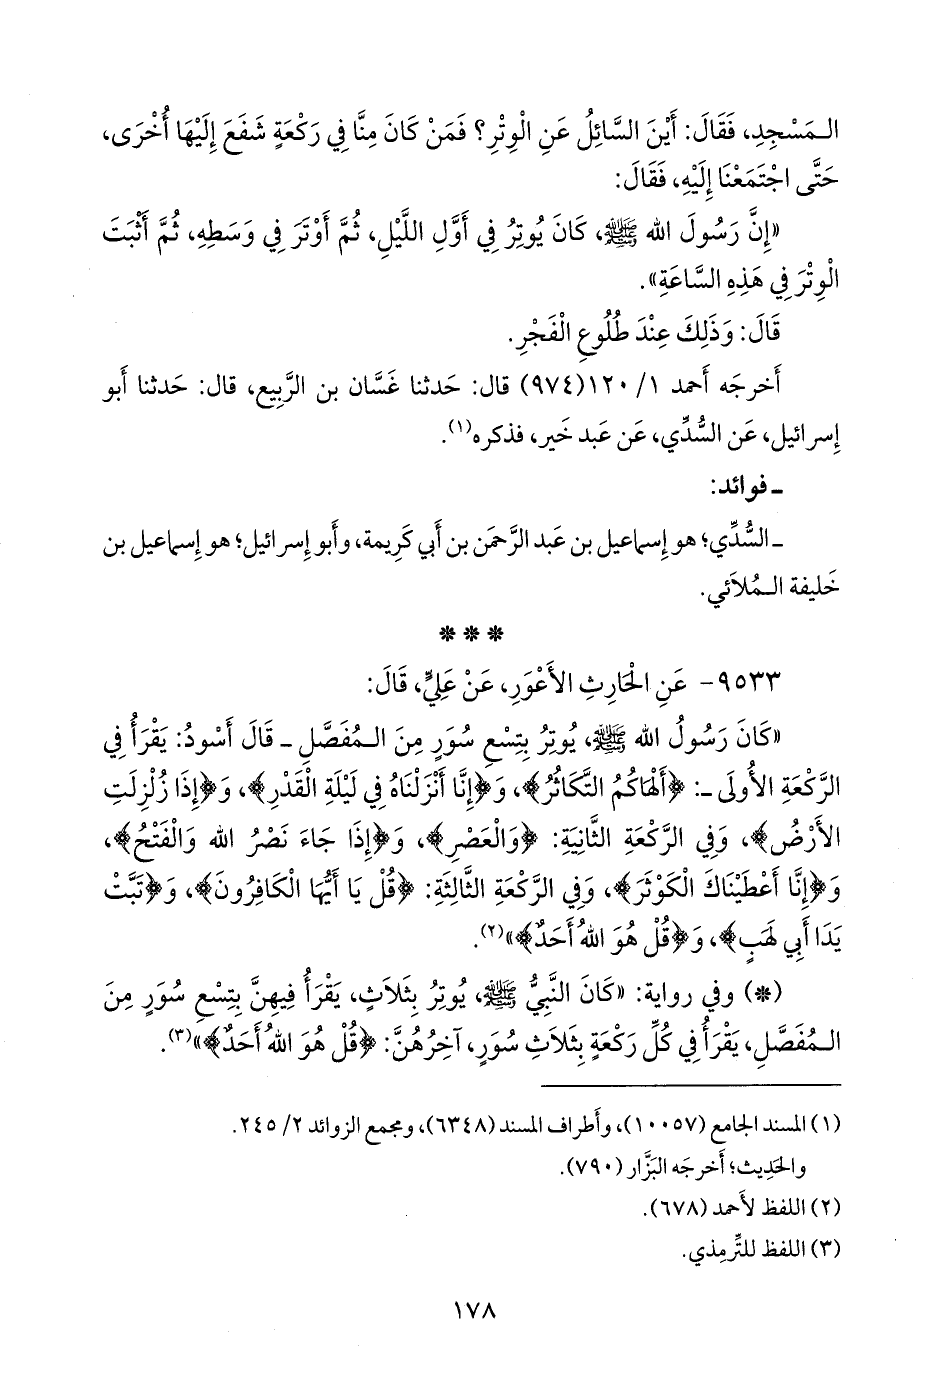 الـمَسْجِدِ، فَقَالَ: أَيْنَ السَّائِلُ عَنِ الْوِتْرِ؟ فَمَنْ كَانَ مِنَّا فِي رَكْعَةٍ شَفَعَ إِلَيْهَا أُخْرَى،
حَتَّى اجْتَمَعْنَا إِلَيْهِ، فَقَالَ:
«إِنَّ رَسُولَ الله ﷺ، كَانَ يُوتِرُ فِي أَوَّلِ اللَّيْلِ، ثُمَّ أَوْتَرَ فِي وَسَطِهِ، ثُمَّ أَثْبَتَ
الْوِتْرَ فِي هَذِهِ السَّاعَةِ».
قَالَ: وَذَلِكَ عِنْدَ طُلُوعِ الْفَجْرِ.
أَخرجَه أَحمد ١/ ١٢٠(٩٧٤) قال: حَدثنا غَسَّان بن الرَّبِيع، قال: حَدثنا أَبو
إِسرائيل، عَن السُّدِّي، عَن عَبد خَير، فذكره(١).
ـ فوائد:
ـ السُّدِّي؛ هو إِسماعيل بن عَبد الرَّحمَن بن أَبي كَرِيمة، وأَبو إِسرائيل؛ هو إِسماعيل بن
خَليفة الـمُلاَئي.
* * *
٩٥٣٣- عَنِ الْحَارِثِ الأَعْوَرِ، عَنْ عَلِيٍّ، قَالَ:
«كَانَ رَسُولُ الله ﷺ، يُوتِرُ بِتِسْعِ سُوَرٍ مِنَ الـمُفَصَّلِ ـ قَالَ أَسْوَدُ: يَقْرَأُ فِي
الرَّكْعَةِ الأُولَى ـ: ﴿أَلْهَاكُمُ التَّكَاثُرُ﴾، وَ﴿إِنَّا أَنْزَلْنَاهُ فِي لَيْلَةِ الْقَدْرِ﴾، وَ﴿إِذَا زُلْزِلَتِ
الأَرْضُ﴾، وَفِي الرَّكْعَةِ الثَّانِيَةِ: ﴿وَالْعَصْرِ﴾، وَ﴿إِذَا جَاءَ نَصْرُ الله وَالْفَتْحُ﴾،
وَ﴿إِنَّا أَعْطَيْنَاكَ الْكَوْثَرَ﴾، وَفِي الرَّكْعَةِ الثَّالِثَةِ: ﴿قُلْ يَا أَيُّهَا الْكَافِرُونَ﴾، وَ﴿تَبَّتْ
يَدَا أَبِي لَهَبٍ﴾، وَ﴿قُلْ هُوَ اللهُ أَحَدٌ﴾»(٢).
(*) وفي رواية: «كَانَ النَّبِيُّ ﷺ، يُوتِرُ بِثَلَاثٍ، يَقْرَأُ فِيهِنَّ بِتِسْعِ سُوَرٍ مِنَ
الـمُفَصَّلِ، يَقْرَأُ فِي كُلِّ رَكْعَةٍ بِثَلَاثِ سُوَرٍ، آخِرُهُنَّ: ﴿قُلْ هُوَ اللهُ أَحَدٌ﴾»(٣).
(١) المسند الجامع (١٠٠٥٧)، وأَطراف المسند (٦٣٤٨)، ومجمع الزوائد ٢/ ٢٤٥.
والحَدِيث؛ أَخرجَه البَزَّار (٧٩٠).
(٢) اللفظ لأَحمد (٦٧٨).
(٣) اللفظ للتِّرمِذي.
١٧٨